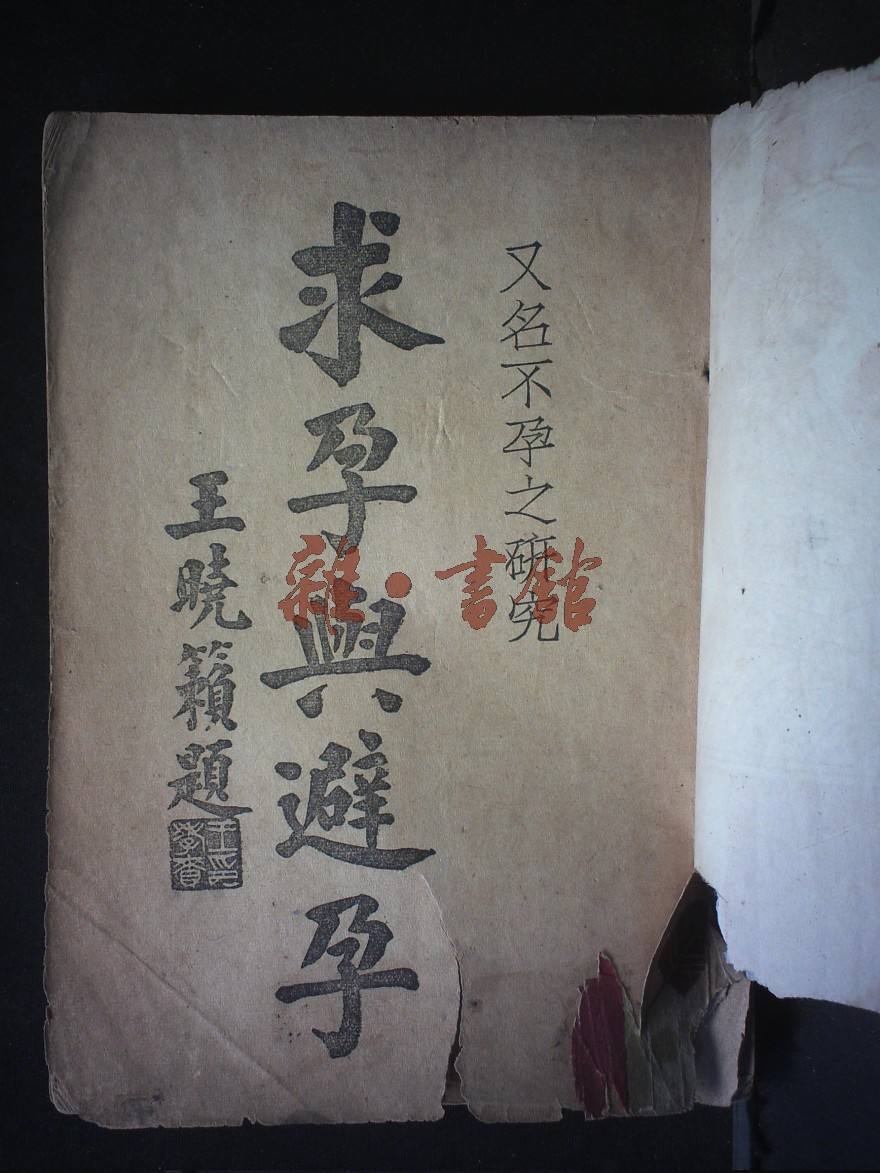 又名不孕之研究
求孕與避孕
王曉籟題
雜·書館